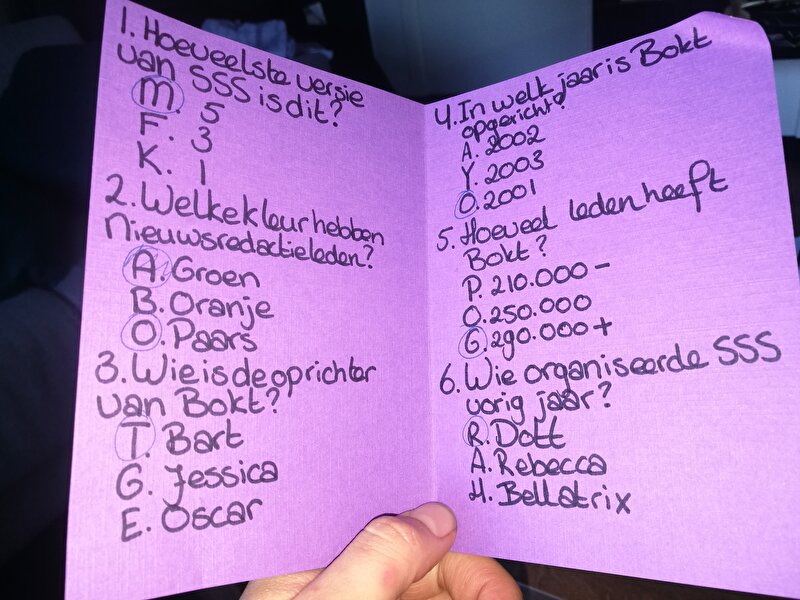 1. Hoeveelste versie
van SSS is dit?
M. 5
F. 3
K. 1
2. Welke kleur hebben
Nieuwsredactieleden?
A. Groen
B. Oranje
O. Paars
3. Wie is de oprichter
van Bokt?
T. Bart
G. Jessica
E. Oscar
4. In welk jaar is Bokt
opgericht?
A. 2002
Y. 2003
O. 2001
5. Hoeveel leden heeft
Bokt?
P. 210.000 -
O. 250.000
G. 290.000 +
6. Wie organiseerde SSS
vorig jaar?
R. Dott
A. Rebecca
H. Bellatrix